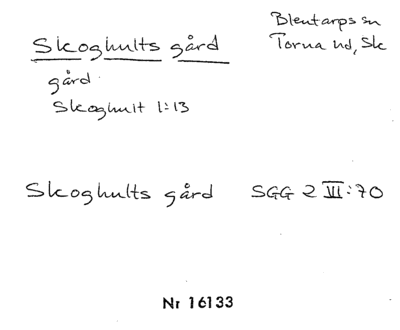 Skoghults gård
Blentarps sn
Torna hd, Sk
gård
Skoghult 1:13
Skoghults gård SGG 2 VII:70
Nr 16133